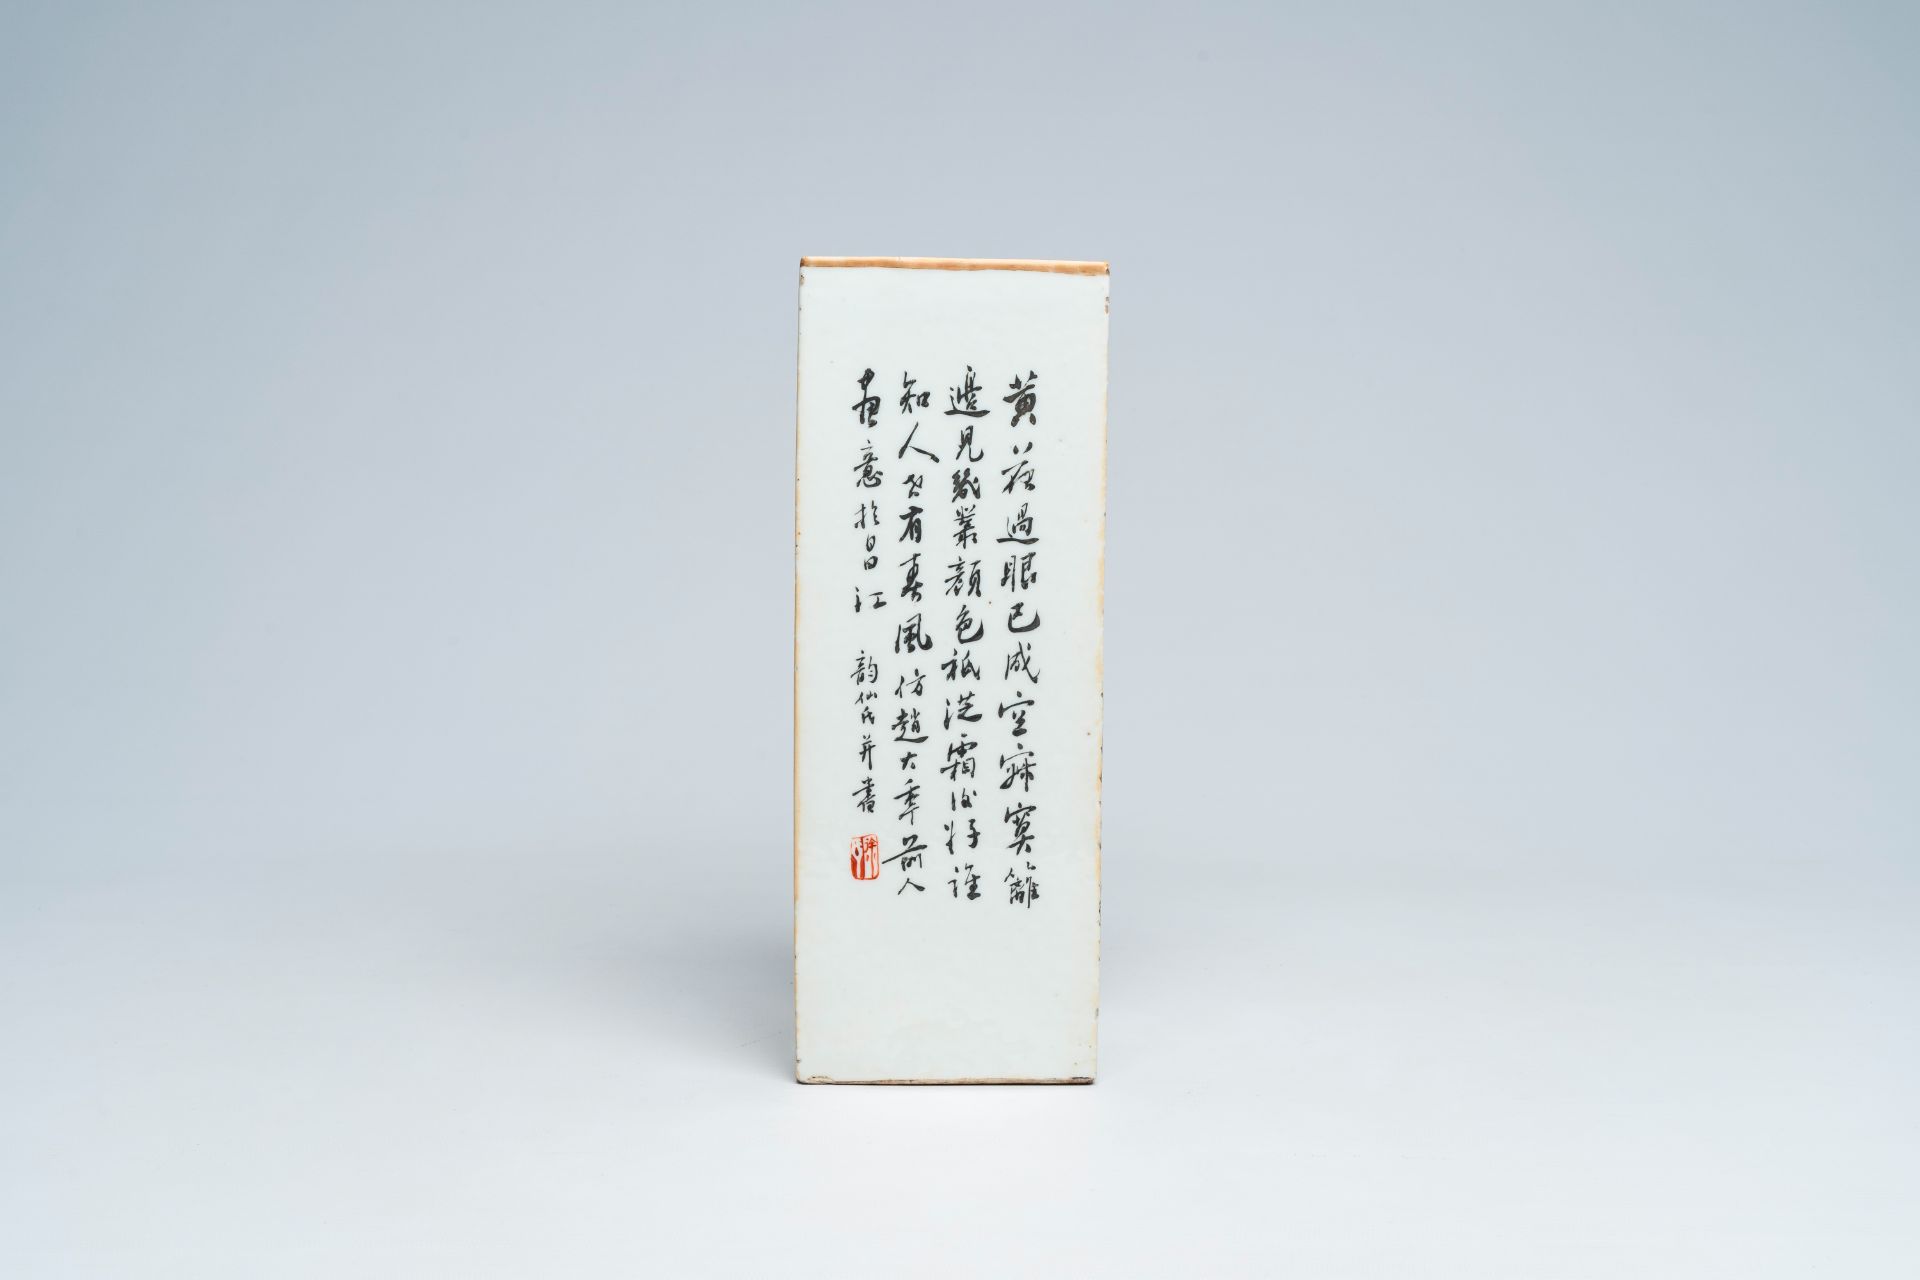 黃花過眼已成空寂寞籬
邊見幾叢顏色祇從霜後好誰
知人世有春風仿趙大年前人
畫意於昌江 韵仙氏并書